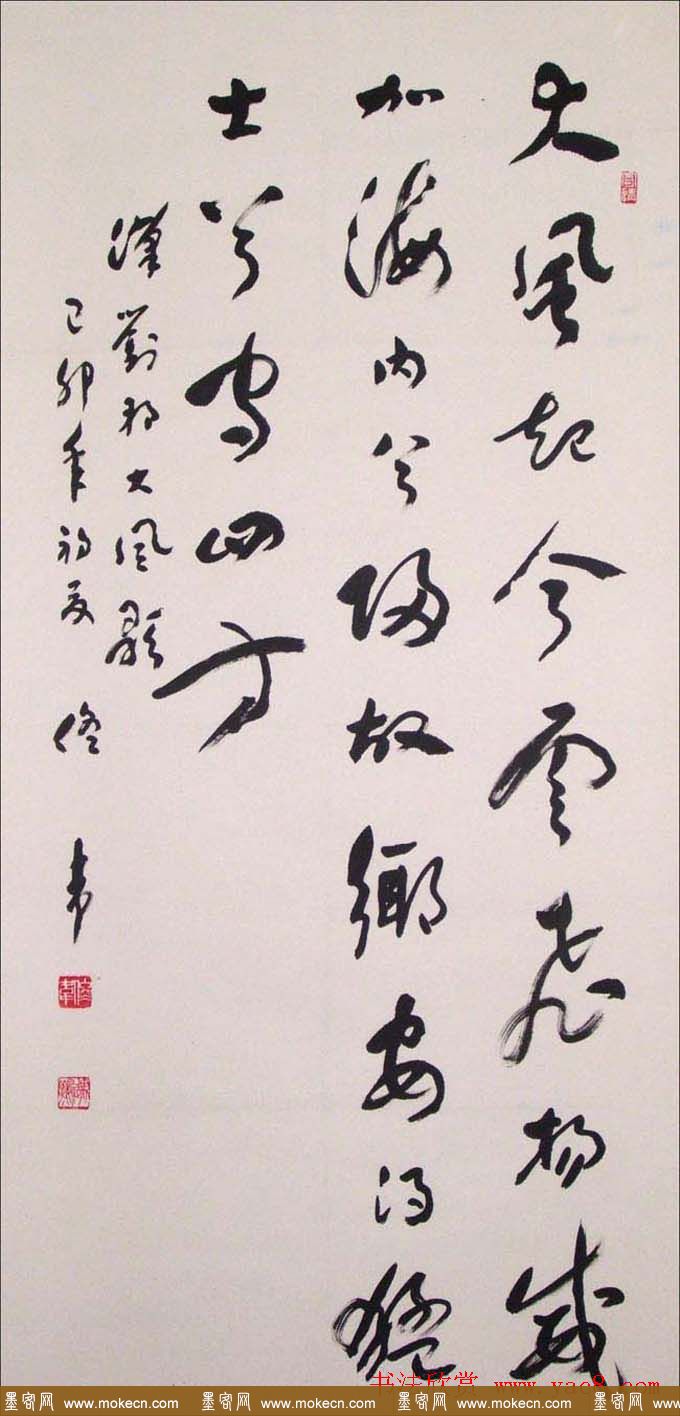 大風起兮雲飛揚威
加海内兮歸故鄉安得猛
士兮守四方
漢劉邦大風歌
己卯年初夏 佟韋
书法欣赏 www.yac8.com
墨客网 www.mokecn.com 墨客网 www.mokecn.com 墨客网 www.mokecn.com 墨客网 www.mokecn.com